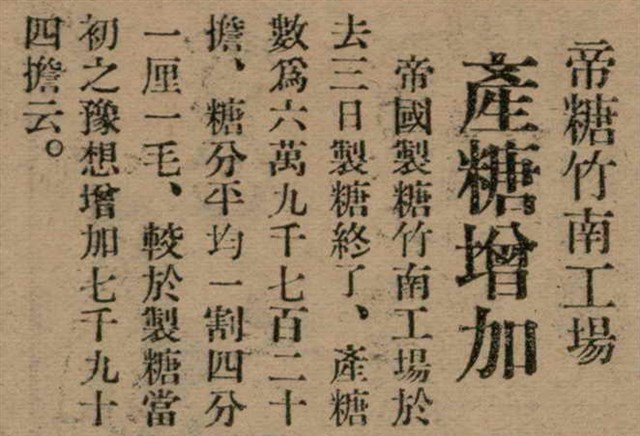 帝糖竹南工場
產糖增加
帝國製糖竹南工場於
去三日製糖終了、產糖
數爲六萬九千七百二十
擔、糖分平均一割四分
一厘一毛、較於製糖當
初之豫想增加七千九十
四擔云。